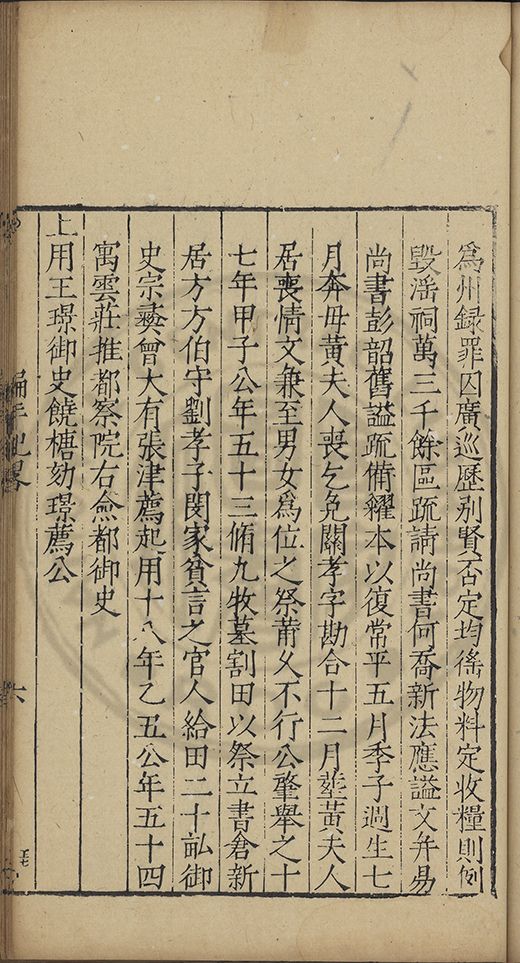 爲州録罪囚廣巡歷别賢否定均徭物料定收糧則例
毁滛祠萬三千餘區疏請尚書何喬新法應謚文并易
尚書彭韶舊謚疏備糴本以復常平五月季子適生七
月奔毋黄夫人喪乞免關孝字勘合十二月塟黄夫人
居喪情文兼至男女爲位之祭莆乆不行公肇舉之十
七年甲子公年五十三脩九牧墓割田以祭立書倉新
居方方伯守劉孝子閔家貧言之官人給田二十畝御
史宗彜曾大有張津薦起用十八年乙丑公年五十四
寓雲莊推都察院右僉都御史
上用王璟御史饒榶劾璟薦公
編年紀畧
六